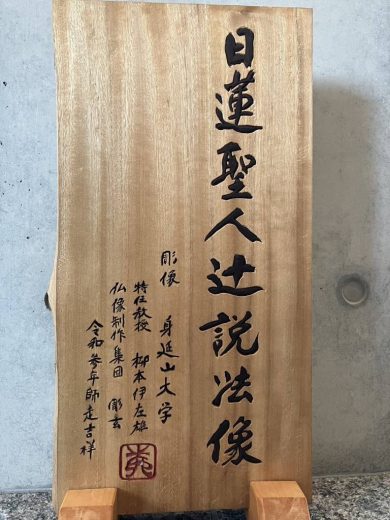 日蓮聖人辻説法像
彫像　身延山大学
特任教授　柳本伊左雄
仏像制作集団　彫玄
令和参年師走吉祥